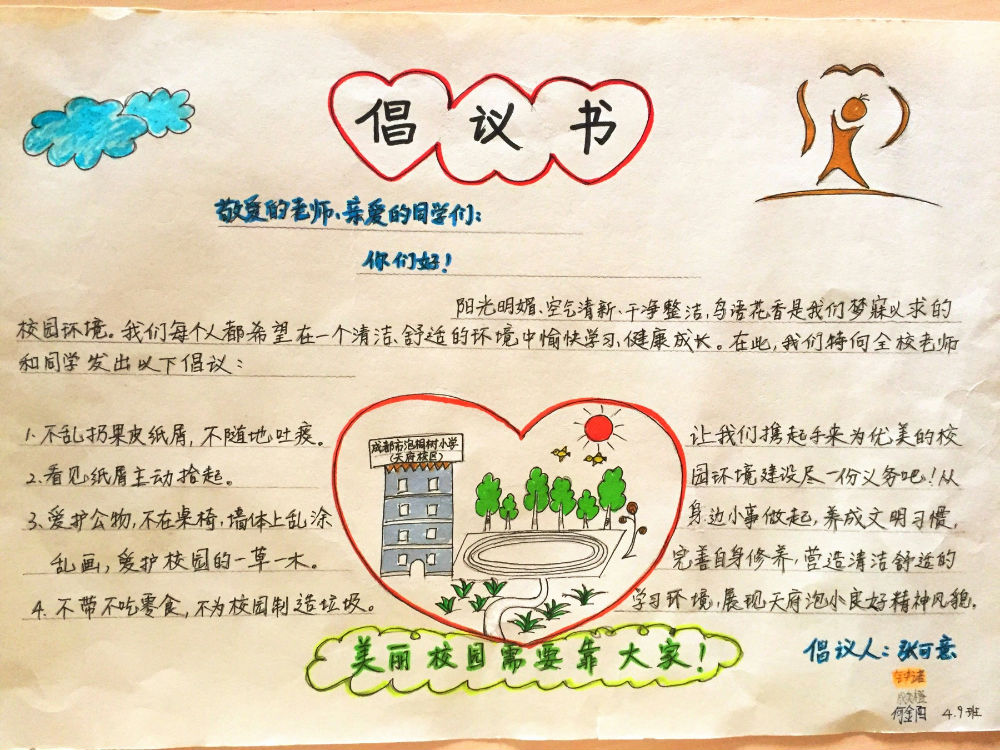 倡议书
敬爱的老师、亲爱的同学们：
你们好！
阳光明媚、空气清新、干净整洁，鸟语花香是我们梦寐以求的
校园环境。我们每个人都希望在一个清洁、舒适的环境中愉快学习、健康成长。在此，我们特向全校老师
和同学发出以下倡议：
1.不乱扔果皮纸屑，不随地吐痰。
2.看见纸屑主动拾起。
3.爱护公物，不在桌椅，墙体上乱涂
乱画，爱护校园的一草一木。
4.不带不吃零食，不为校园制造垃圾。
成都市泡桐树小学
（天府校区）
让我们携起手来为优美的校
园环境建设尽一份义务吧！从
身边小事做起，养成文明习惯，
完善自身修养，营造清洁舒适的
学习环境，展现天府泡小良好精神风貌。
美丽校园需要靠大家！
倡议人：张可意
何金阳 4.9班